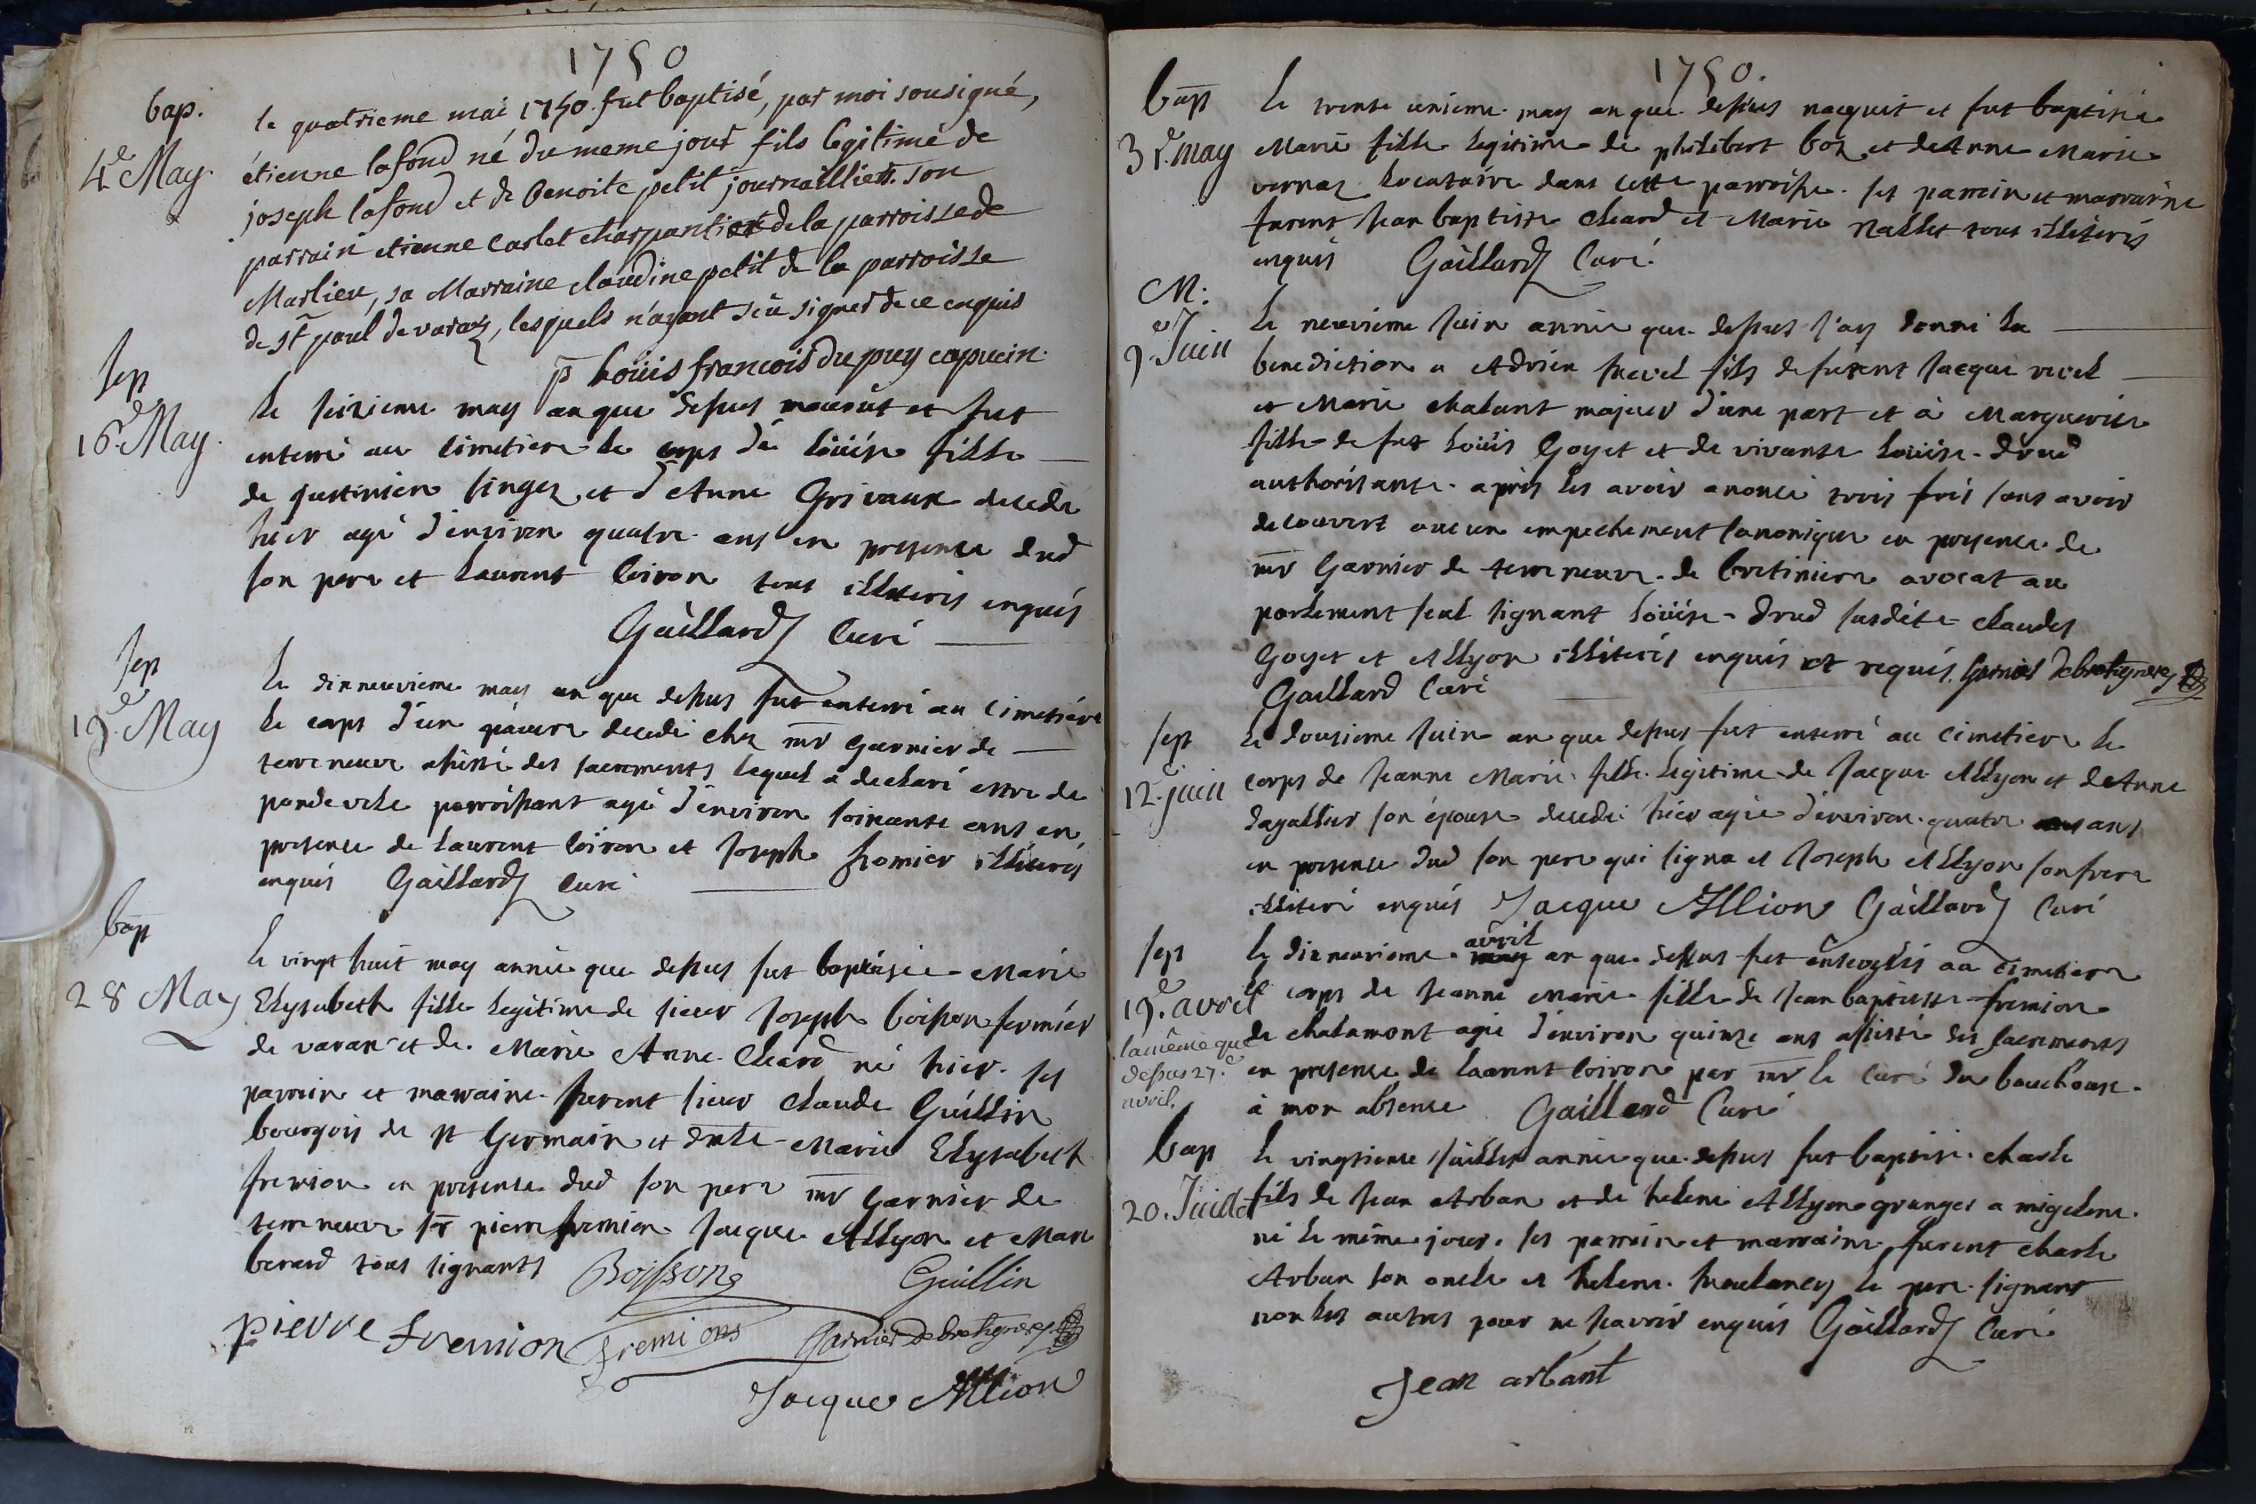 1750
bap.
4e May.
le quatrieme mai 1750. fut baptisé, par moi sousigné,
étienne lafond né du meme jour fils legitime de
joseph lafond et de benoite petit journaillier. son
parrain etienne carlet charpantier de la parroisse de
Marlieu, sa Marraine claudine petit de la parroisse
de st paul de varax, lesquels n'ayant sçu signer de ce enquis
p Loüis francois dupuy capucin.
sep
16e May.
Le seizieme may an que dessus mourut et fut
enterré au cimetiere le corps de Loüise fille
de justinien singez et d'Anne Grivaux decedé
hier agé d'environ quatre ans en presence dud
son pere et Laurent Coiron tous illiteris enquis
Gaillard Curé
sep
19e May
Le dixneuvieme may an que dessus fut enterré au Cimetiére
le corps d'un pauvre decedé chez mr Garnier de
terreneuve assisté des sacrements lequel a declaré estre de
pondevele parroissant agé d'environ soixante ans en
presence de Laurent Coiron et Joseph fromier illiteris
enquis Gaillard Curé
bap
28 May
Le vingt huit may année que dessus fut baptisée Marie
Elysabeth fille legitime de sieur Joseph boisson fermier
de varax et de Marie Anne Cheard né hier. ses
parrein et marraine furent sieur Claude Guillin
bourgois de st Germain et dmlle Marie Elysabeth
fremion en presence dud son pere mr Garnier de
terreneuve sr pierre fremion Jacque Allyon et Marc
berard tous signants
Boisson
Guillin
pierre fremion
fremion
Garnier Debretigneres
Jacque Allion
1750.
bap
31. may
Le trente unieme may an que dessus nacquit et fut baptisée
Marie fille legitime de philibert boz et de Anne Marie
vernaz Locataire dans cette parroisse. ses parrein et marraine
furent Jean baptiste Cheard et Marie Nallet tous illiteris
enquis Gaillard Curé.
M:
9e Juin
Le neuvieme Juin année que dessus j'ay donné la
benediction a Adrien revel fils de furent Jacque revel
et Marie chalant majeur d'une part et à Marguerite
fille de fut Loüis Goyet et de vivante Loüise drud
authorisante. aprés les avoir anoncé trois fois sans avoir
decouvert aucun empechement canonique en presence de
mr Garnier de terreneuve de bretiniere avocat au
parlement seul signant Loüise drud susdite Claudes
Goyet et Allyon illiteris enquis et requis. Garnier Debretigneres
Gaillard Curé
sep
12. juin
Le dousieme Juin an que dessus fut enterré au cimetiere le
corps de Jeanne Marie fille legitime de Jacque Allyon et de Anne
dagallier son épouse decedé hier agée d'environ quatre ans
en presence dud son pere qui signa et Joseph Allyon son frere
illiteré enquis Jacque Allion Gaillard Curé
sep
19e. avril
la même que
dessus 27e
avril.
Le dixneuvieme avril an que dessus fut ensevelis au cimetiere
le corps de Jeanne Marie fille de Jean baptiste fremion
de chalamont agée d'environ quinze ans assisté des sacrements
en presence de Laurent Coiron par mr le curé du bouchoux
à mon absence Gaillard Curé
bap
20. Juillet
Le vingtieme Juillet année que dessus fut baptisé. charle
fils de Jean Arban et de helene Allyon granger a migelene.
né le même jour. ses parrein et marraine furent charle
Arban son oncle et helene le pere signant
non les autres pour ne sçavoir enquis Gaillard Curé
Jean arbant